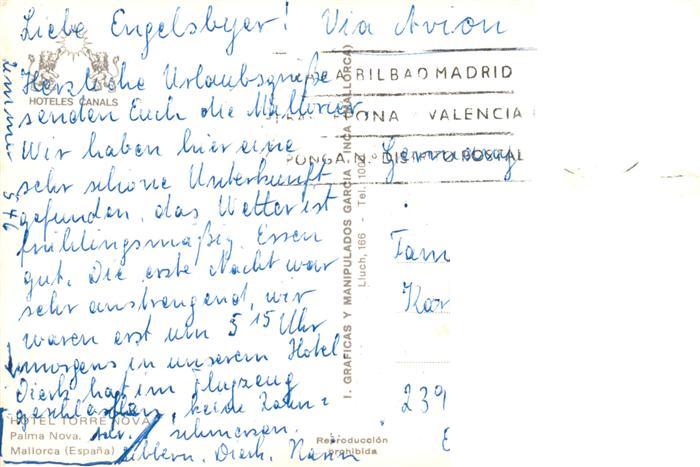 Liebe Engelsbyer! Via Avion
Herzliche Urlaubsgrüße
senden Euch die Malloriner,
Wir haben hier eine
sehr schöne Unterkunft
gefunden, das Wetter ist
frühlingsmäßig. Essen
gut. Die erste Nacht war
sehr anstrengend, wir
waren erst um 5 15 Uhr
morgens in unserem Hotel
Dierk hat im Flugzeug
geschlafen, keine Zahn=
schmerzen.
Dierk.
Zimmer 546
HOTELES CANALS
BILBAO MADRID
ONA VALENCIA
PONGA N.º DISTRITO POSTAL
Germany
Fam
Kar
239
I. GRAFICAS Y MANIPULADOS GARCIA - INCA (MALLORCA)
Lluch, 166 - Tel.
HOTEL TORRE NOVA
Palma Nova.
Mallorca (España)
Reproducción
prohibida